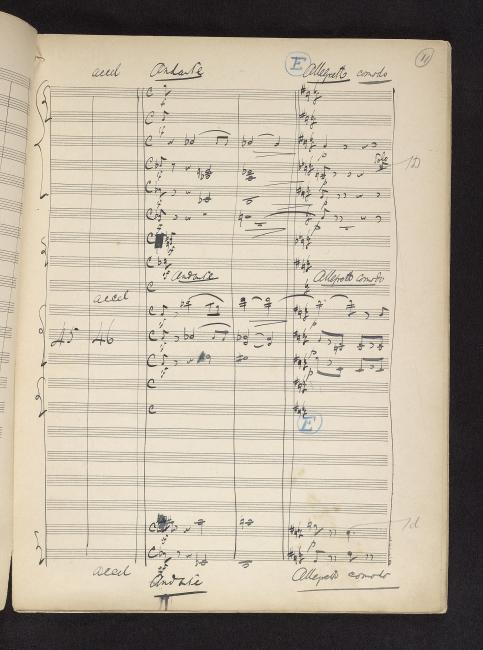 accel Andante E Allegretto comodo 11
Solo
1D
Andante Allegretto comodo
accel
45 46
E
1d
accel Andante Allegretto comodo